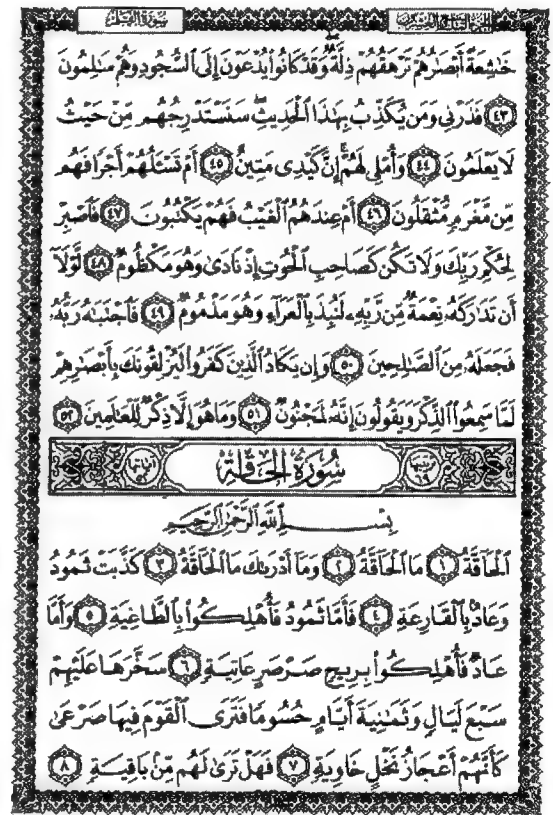 سورة القلم
الجزء التاسع والعشرون
خَٰشِعَةً أَبْصَٰرُهُمْ تَرْهَقُهُمْ ذِلَّةٌ ۖ وَقَدْ كَانُوا۟ يُدْعَوْنَ إِلَى ٱلسُّجُودِ وَهُمْ سَٰلِمُونَ
﴿٤٣﴾ فَذَرْنِى وَمَن يُكَذِّبُ بِهَٰذَا ٱلْحَدِيثِ ۖ سَنَسْتَدْرِجُهُم مِّنْ حَيْثُ
لَا يَعْلَمُونَ ﴿٤٤﴾ وَأُمْلِى لَهُمْ ۚ إِنَّ كَيْدِى مَتِينٌ ﴿٤٥﴾ أَمْ تَسْـَٔلُهُمْ أَجْرًا فَهُم
مِّن مَّغْرَمٍ مُّثْقَلُونَ ﴿٤٦﴾ أَمْ عِندَهُمُ ٱلْغَيْبُ فَهُمْ يَكْتُبُونَ ﴿٤٧﴾ فَٱصْبِرْ
لِحُكْمِ رَبِّكَ وَلَا تَكُن كَصَاحِبِ ٱلْحُوتِ إِذْ نَادَىٰ وَهُوَ مَكْظُومٌ ﴿٤٨﴾ لَّوْلَآ
أَن تَدَٰرَكَهُۥ نِعْمَةٌ مِّن رَّبِّهِۦ لَنُبِذَ بِٱلْعَرَآءِ وَهُوَ مَذْمُومٌ ﴿٤٩﴾ فَٱجْتَبَٰهُ رَبُّهُۥ
فَجَعَلَهُۥ مِنَ ٱلصَّٰلِحِينَ ﴿٥٠﴾ وَإِن يَكَادُ ٱلَّذِينَ كَفَرُوا۟ لَيُزْلِقُونَكَ بِأَبْصَٰرِهِمْ
لَمَّا سَمِعُوا۟ ٱلذِّكْرَ وَيَقُولُونَ إِنَّهُۥ لَمَجْنُونٌ ﴿٥١﴾ وَمَا هُوَ إِلَّا ذِكْرٌ لِّلْعَٰلَمِينَ ﴿٥٢﴾
سُورَةُ الْحَاقَّةِ
بِسْمِ ٱللَّهِ ٱلرَّحْمَٰنِ ٱلرَّحِيمِ
ٱلْحَآقَّةُ ﴿١﴾ مَا ٱلْحَآقَّةُ ﴿٢﴾ وَمَآ أَدْرَىٰكَ مَا ٱلْحَآقَّةُ ﴿٣﴾ كَذَّبَتْ ثَمُودُ
وَعَادٌۢ بِٱلْقَارِعَةِ ﴿٤﴾ فَأَمَّا ثَمُودُ فَأُهْلِكُوا۟ بِٱلطَّاغِيَةِ ﴿٥﴾ وَأَمَّا
عَادٌ فَأُهْلِكُوا۟ بِرِيحٍ صَرْصَرٍ عَاتِيَةٍ ﴿٦﴾ سَخَّرَهَا عَلَيْهِمْ
سَبْعَ لَيَالٍ وَثَمَٰنِيَةَ أَيَّامٍ حُسُومًا فَتَرَى ٱلْقَوْمَ فِيهَا صَرْعَىٰ
كَأَنَّهُمْ أَعْجَازُ نَخْلٍ خَاوِيَةٍ ﴿٧﴾ فَهَلْ تَرَىٰ لَهُم مِّنۢ بَاقِيَةٍ ﴿٨﴾